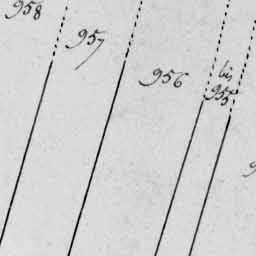 958
957
956
bis
955
9